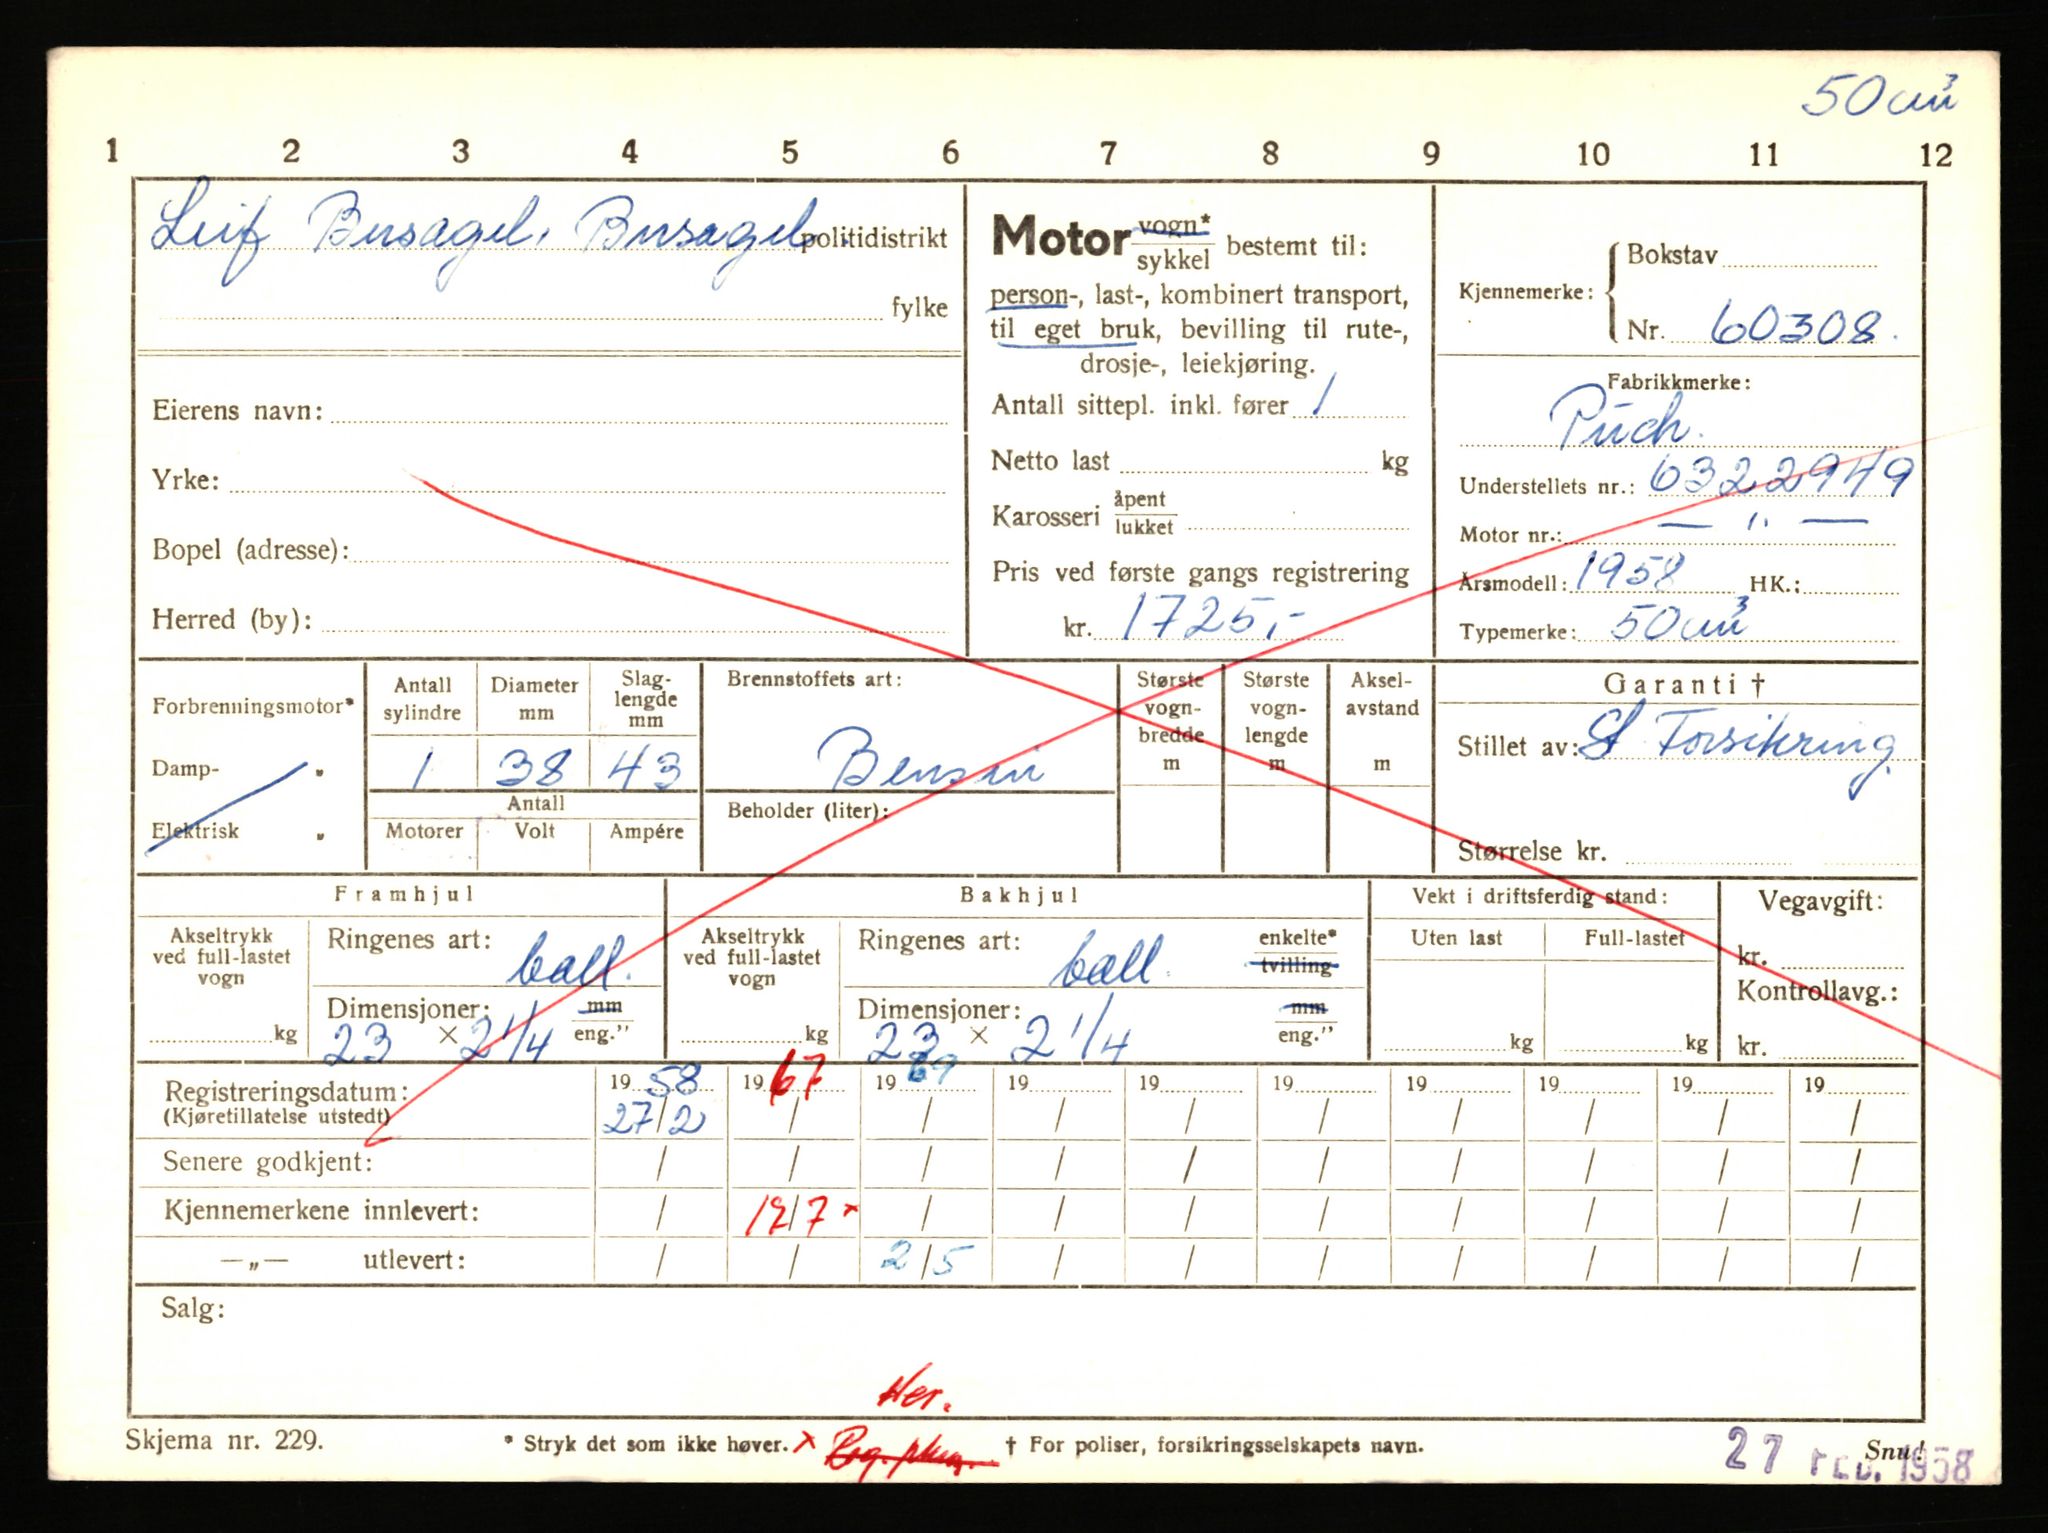 50 cm³
1 2 3 4 5 6 7 8 9 10 11 12
Leif Busagel, Busagel. politidistrikt
fylke
Eierens navn:
Yrke:
Bopel (adresse):
Herred (by):
Motor vogn* / sykkel bestemt til:
person-, last-, kombinert transport,
til eget bruk, bevilling til rute-,
drosje-, leiekjøring.
Antall sittepl. inkl. fører 1
Netto last kg
Karosseri åpent / lukket
Pris ved første gangs registrering
kr. 1725,-
Kjennemerke: Bokstav
Nr. 60308.
Fabrikkmerke:
Puch.
Understellets nr.: 6322949
Motor nr.: — " —
Årsmodell: 1958 HK.:
Typemerke: 50 cm³
Forbrenningsmotor*
Damp- "
Elektrisk "
Antall sylindre
Diameter mm
Slag-
lengde
mm
1 38 43
Antall
Motorer Volt Ampére
Brennstoffets art:
Bensin
Beholder (liter):
Største
vogn-
bredde
m
Største
vogn-
lengde
m
Aksel-
avstand
m
Garanti †
Stillet av: St Forsikring
Størrelse kr.
Framhjul
Akseltrykk
ved full-lastet
vogn
kg
Ringenes art: ball.
Dimensjoner: mm / eng."
23 × 2 1/4
Bakhjul
Akseltrykk
ved full-lastet
vogn
kg
Ringenes art: ball. enkelte* / tvilling
Dimensjoner: mm / eng."
23 × 2 1/4
Vekt i driftsferdig stand:
Uten last Full-lastet
kg kg
Vegavgift:
kr.
Kontrollavg.:
kr.
Registreringsdatum: 19 58 19 67 19 69 19 19 19 19 19 19 19
(Kjøretillatelse utstedt) 27/2 / / / / / / / / /
Senere godkjent: / / / / / / / / / /
Kjennemerkene innlevert: / 12/7 × / / / / / / / /
—„— utlevert: / / 2/5 / / / / / / /
Salg:
Her.
Skjema nr. 229. * Stryk det som ikke høver. × † For poliser, forsikringsselskapets navn. Snu!
27 FEB. 1958